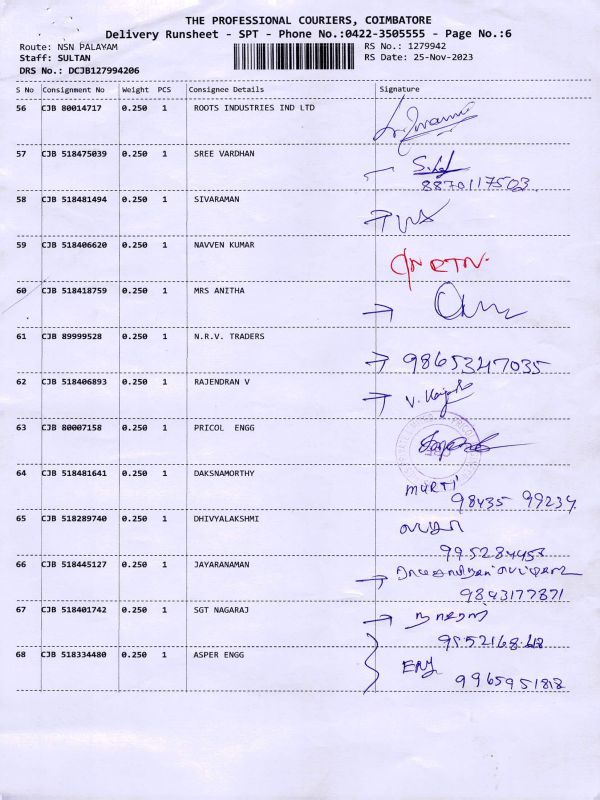 THE PROFESSIONAL COURIERS, COIMBATORE
Delivery Runsheet - SPT - Phone No.:0422-3505555 - Page No.:6
Route: NSN PALAYAM RS No.: 1279942
Staff: SULTAN RS Date: 25-Nov-2023
DRS No.: DCJB127994206
S No Consignment No Weight PCS Consignee Details Signature
56 CJB 80014717 0.250 1 ROOTS INDUSTRIES IND LTD
57 CJB 518475039 0.250 1 SREE VARDHAN
8870117503
58 CJB 518481494 0.250 1 SIVARAMAN
59 CJB 518406620 0.250 1 NAVVEN KUMAR
RTN
60 CJB 518418759 0.250 1 MRS ANITHA
61 CJB 89999528 0.250 1 N.R.V. TRADERS
9865347035
62 CJB 518406893 0.250 1 RAJENDRAN V
63 CJB 80007158 0.250 1 PRICOL ENGG
64 CJB 518481641 0.250 1 DAKSNAMORTHY
MURTI
98435 99234
65 CJB 518289740 0.250 1 DHIVYALAKSHMI
66 CJB 518445127 0.250 1 JAYARANAMAN
9843177871
67 CJB 518401742 0.250 1 SGT NAGARAJ
68 CJB 518334480 0.250 1 ASPER ENGG
9965951818